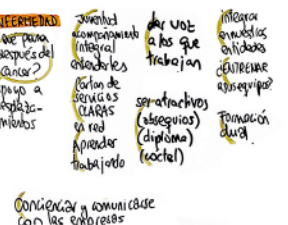 ENFERMEDAD
¿qué pasa
después del
cancer?
apoyo a
desplaza-
mientos
Juventud
acompañamiento
integral
entenderles
Cartas de
servicios
CLARAS
en red
Aprender
trabajando
dar voz
a los que
trabajan
ser atractivos
(obsequios)
(diploma)
(coctel)
integrar
en nuestras
entidades
¿ENTRENAR
a sus equipos?
Formación
dual.
Concienciar y comunicarse
con las empresas